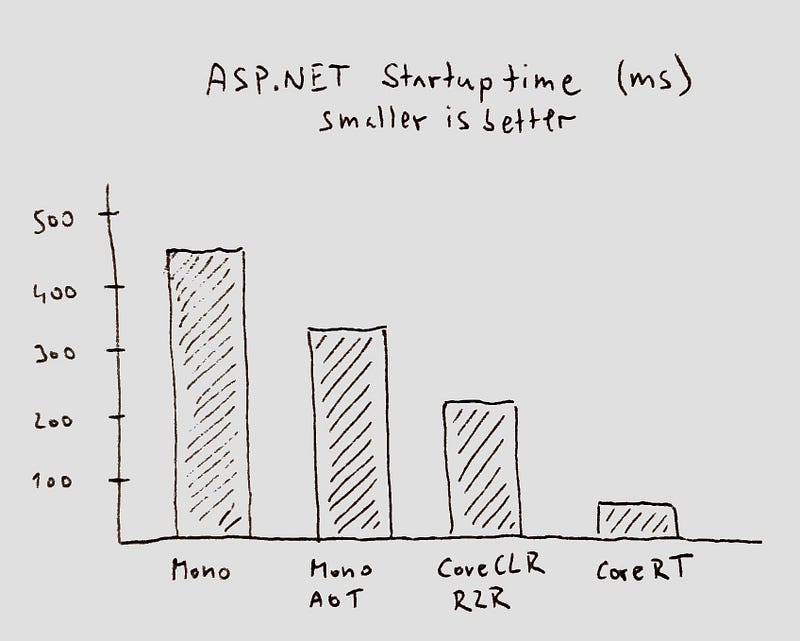 ASP.NET Startup time (ms)
smaller is better
500
400
300
200
100
Mono
Mono
AOT
CoreCLR
R2R
CoreRT